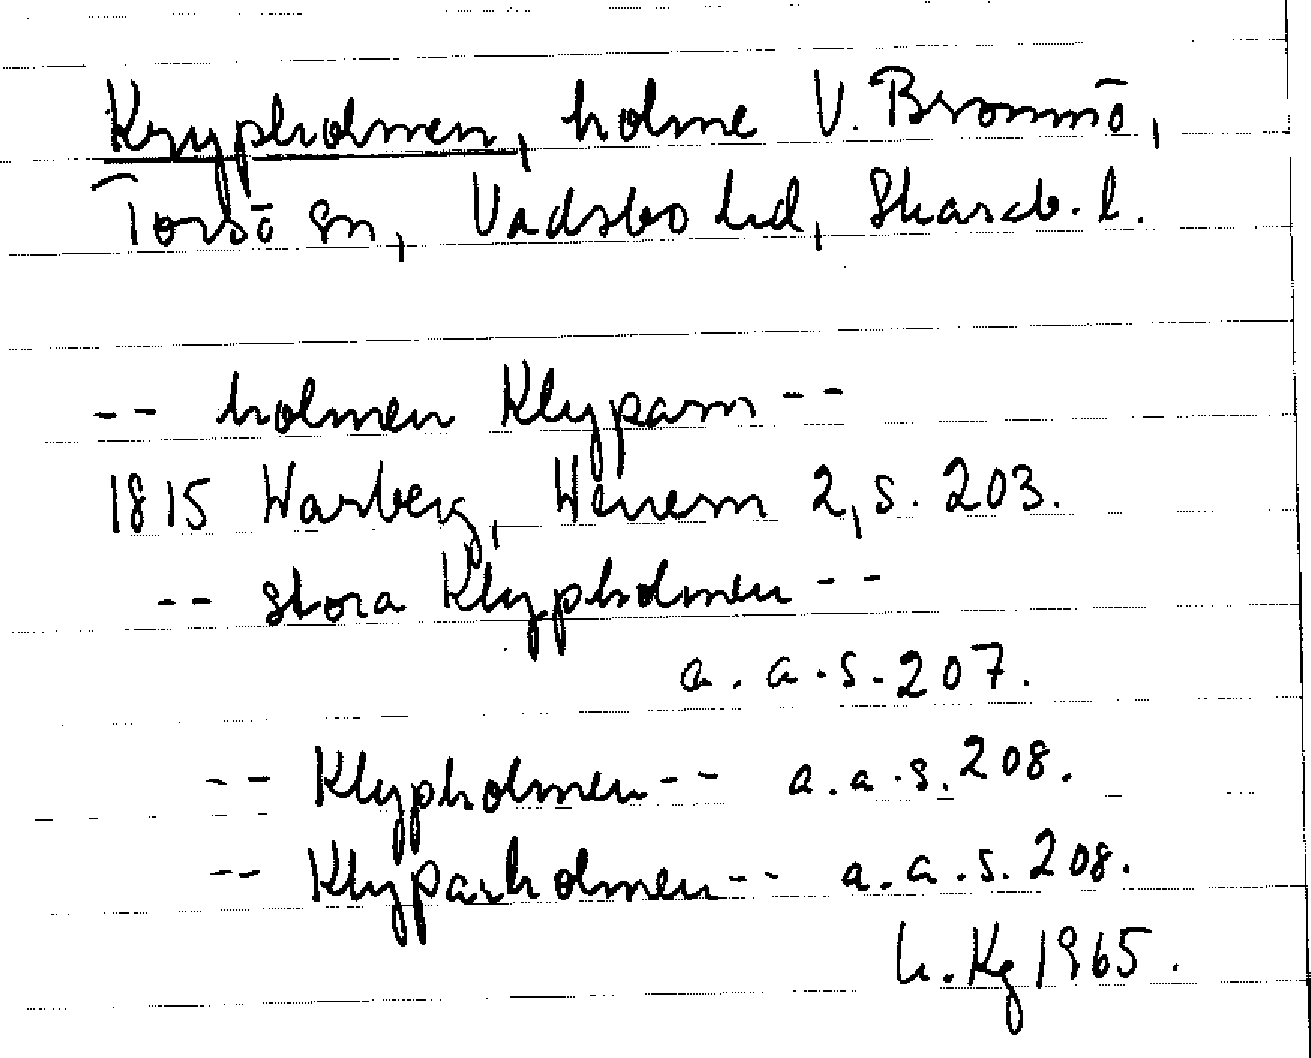 Krypholmen, holme V. Brommö,
Torsö sn, Vadsbo hd, Skarab. l.
-- holmen Klyparn --
1815 Warberg, Wenern 2, s. 203.
-- stora Klypholmen --
a. a. s. 207.
-- Klypholmen -- a. a. s. 208.
-- Klyparholmen -- a. a. s. 208.
h. Kg 1965.